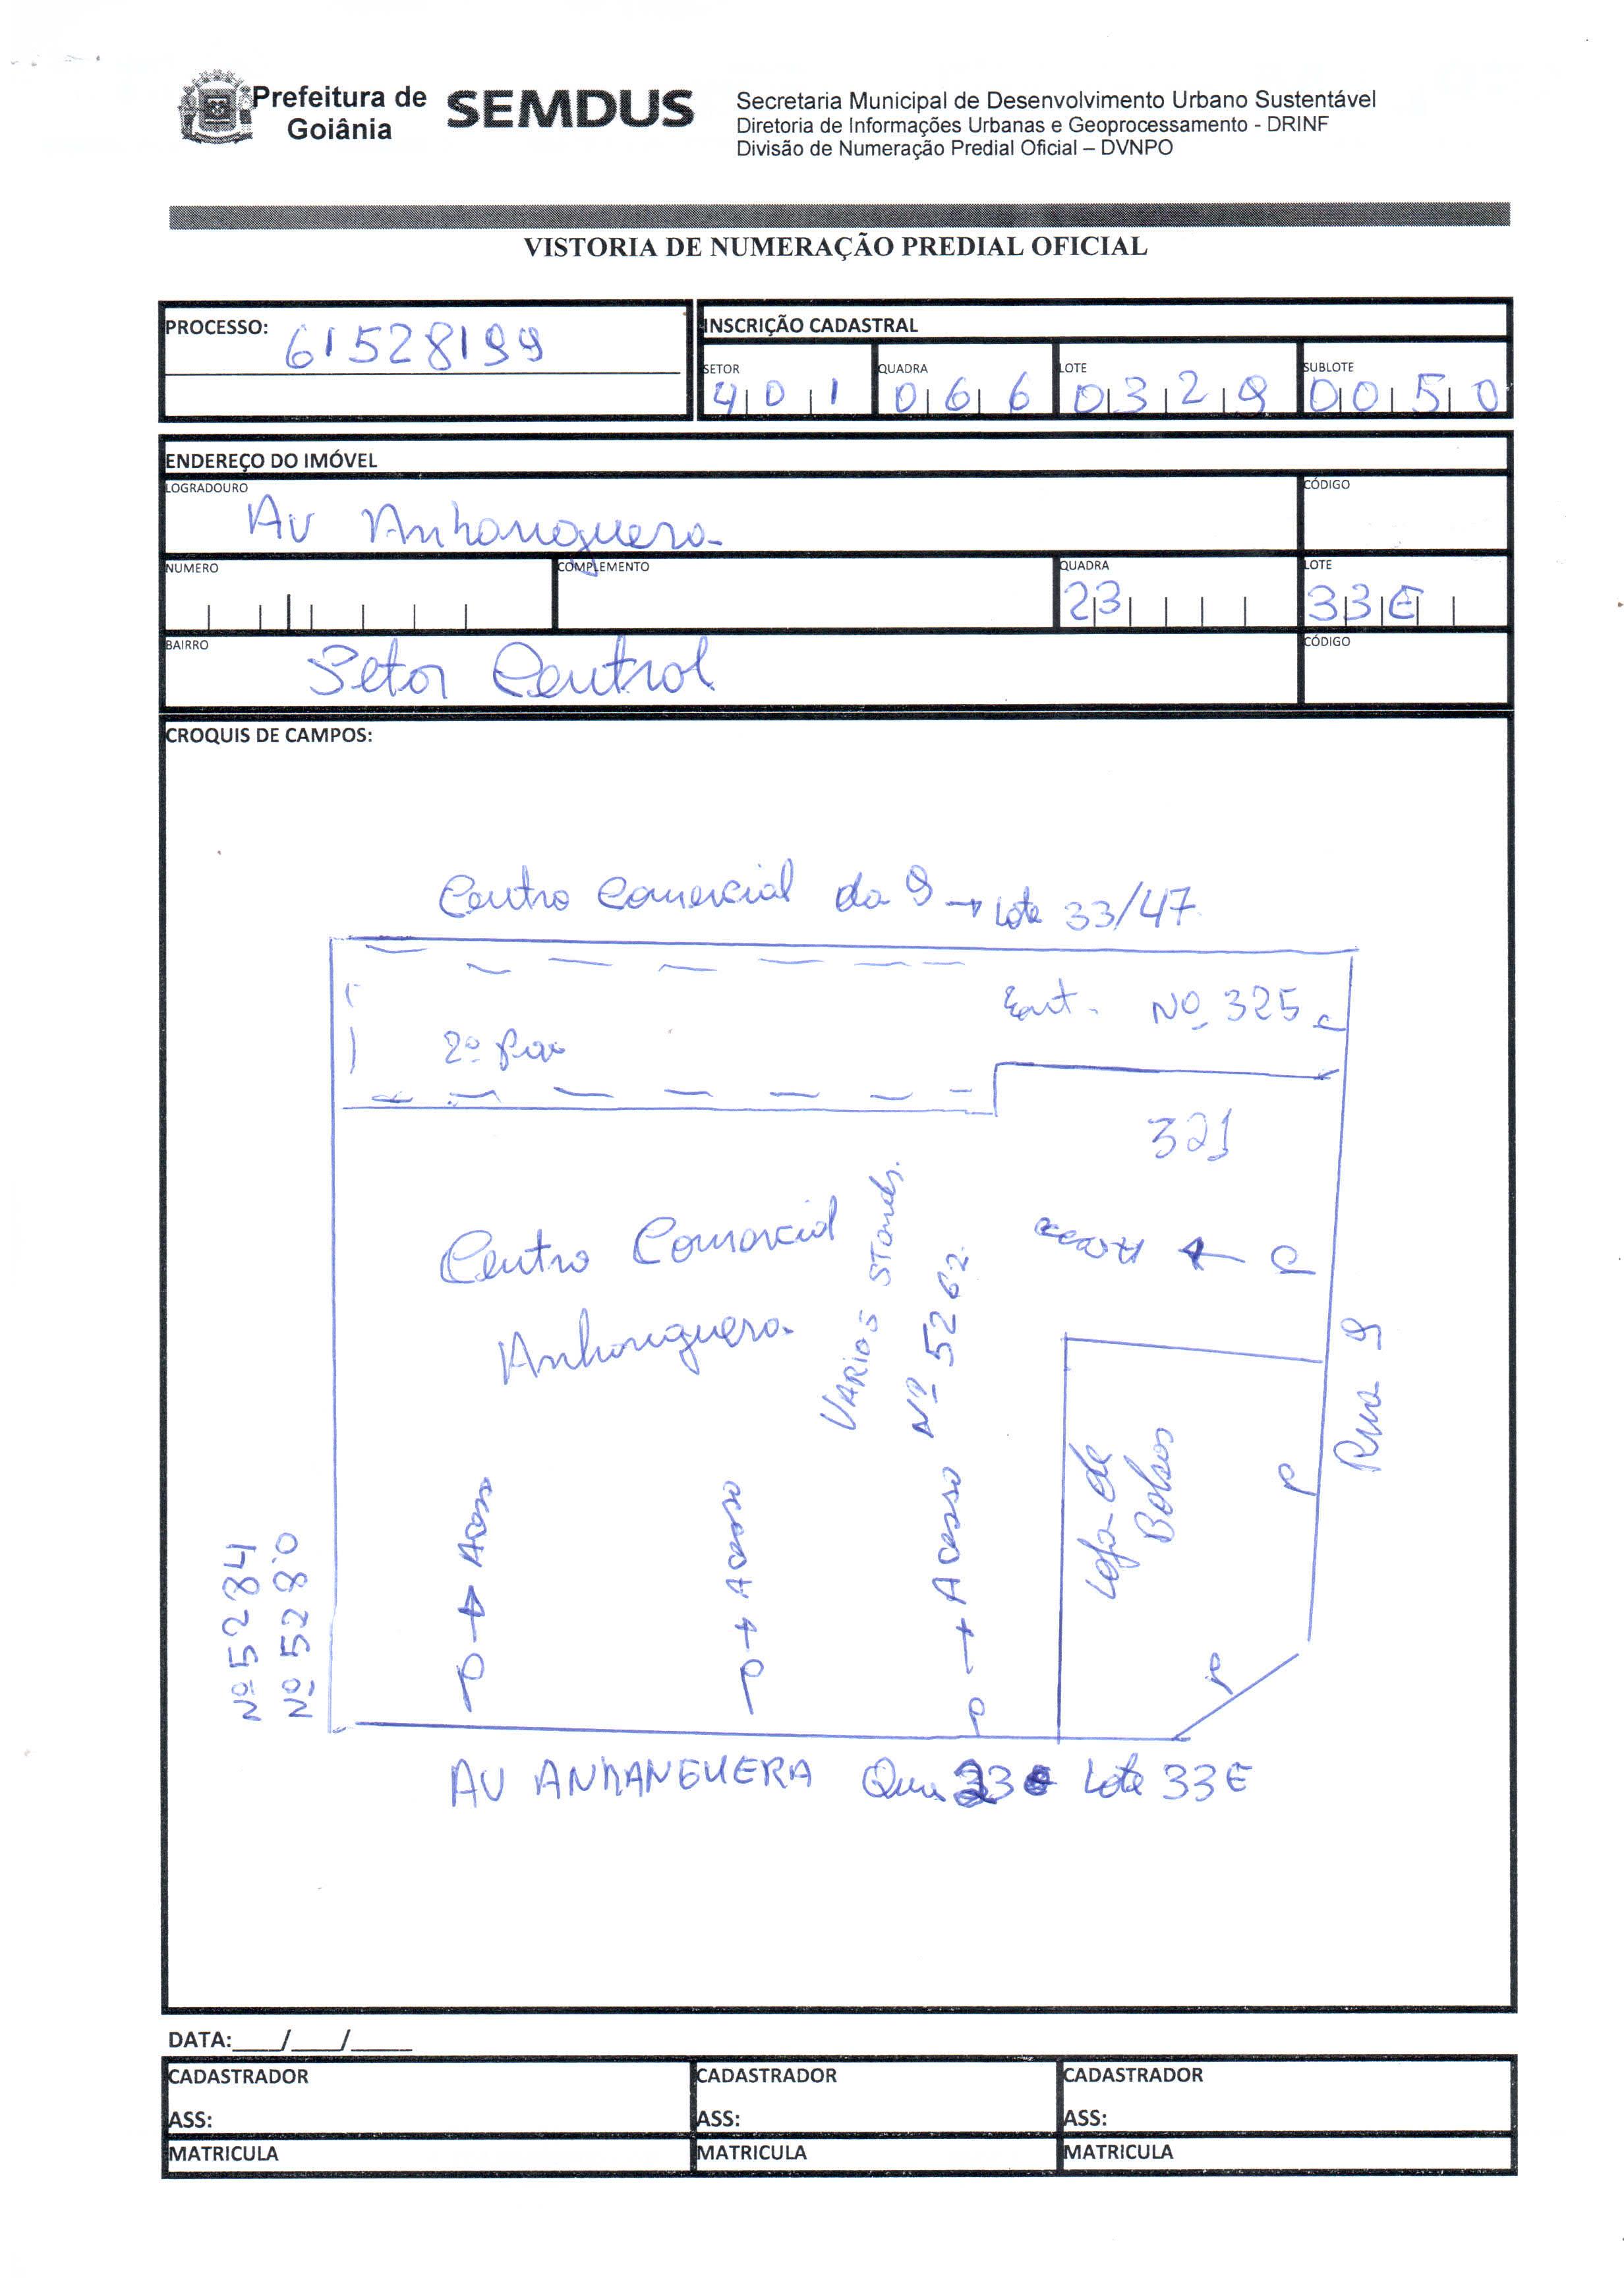 Prefeitura de Goiânia
SEMDUS
Secretaria Municipal de Desenvolvimento Urbano Sustentável
Diretoria de Informações Urbanas e Geoprocessamento - DRINF
Divisão de Numeração Predial Oficial – DVNPO
VISTORIA DE NUMERAÇÃO PREDIAL OFICIAL
PROCESSO: 61528199
INSCRIÇÃO CADASTRAL
SETOR 401 QUADRA 066 LOTE 0329 SUBLOTE 0050
ENDEREÇO DO IMÓVEL
LOGRADOURO Av Anhanguera CÓDIGO
NUMERO COMPLEMENTO QUADRA 23 LOTE 33E
BAIRRO Setor Central CÓDIGO
CROQUIS DE CAMPOS:
Centro Comercial da 9 → Lote 33/47
Ent. Nº 325
2º Pav
321
Centro Comercial
Anhanguera
VARIOS STands.
Nº 5262
P
Rua 9
Loja de
Bolsas
P
P
P → Acesso
P → Acesso
P → Acesso
Nº 5284
Nº 5280
AV ANHANGUERA Qua. 23 Lote 33E
DATA:____/____/_____
CADASTRADOR CADASTRADOR CADASTRADOR
ASS: ASS: ASS:
MATRICULA MATRICULA MATRICULA